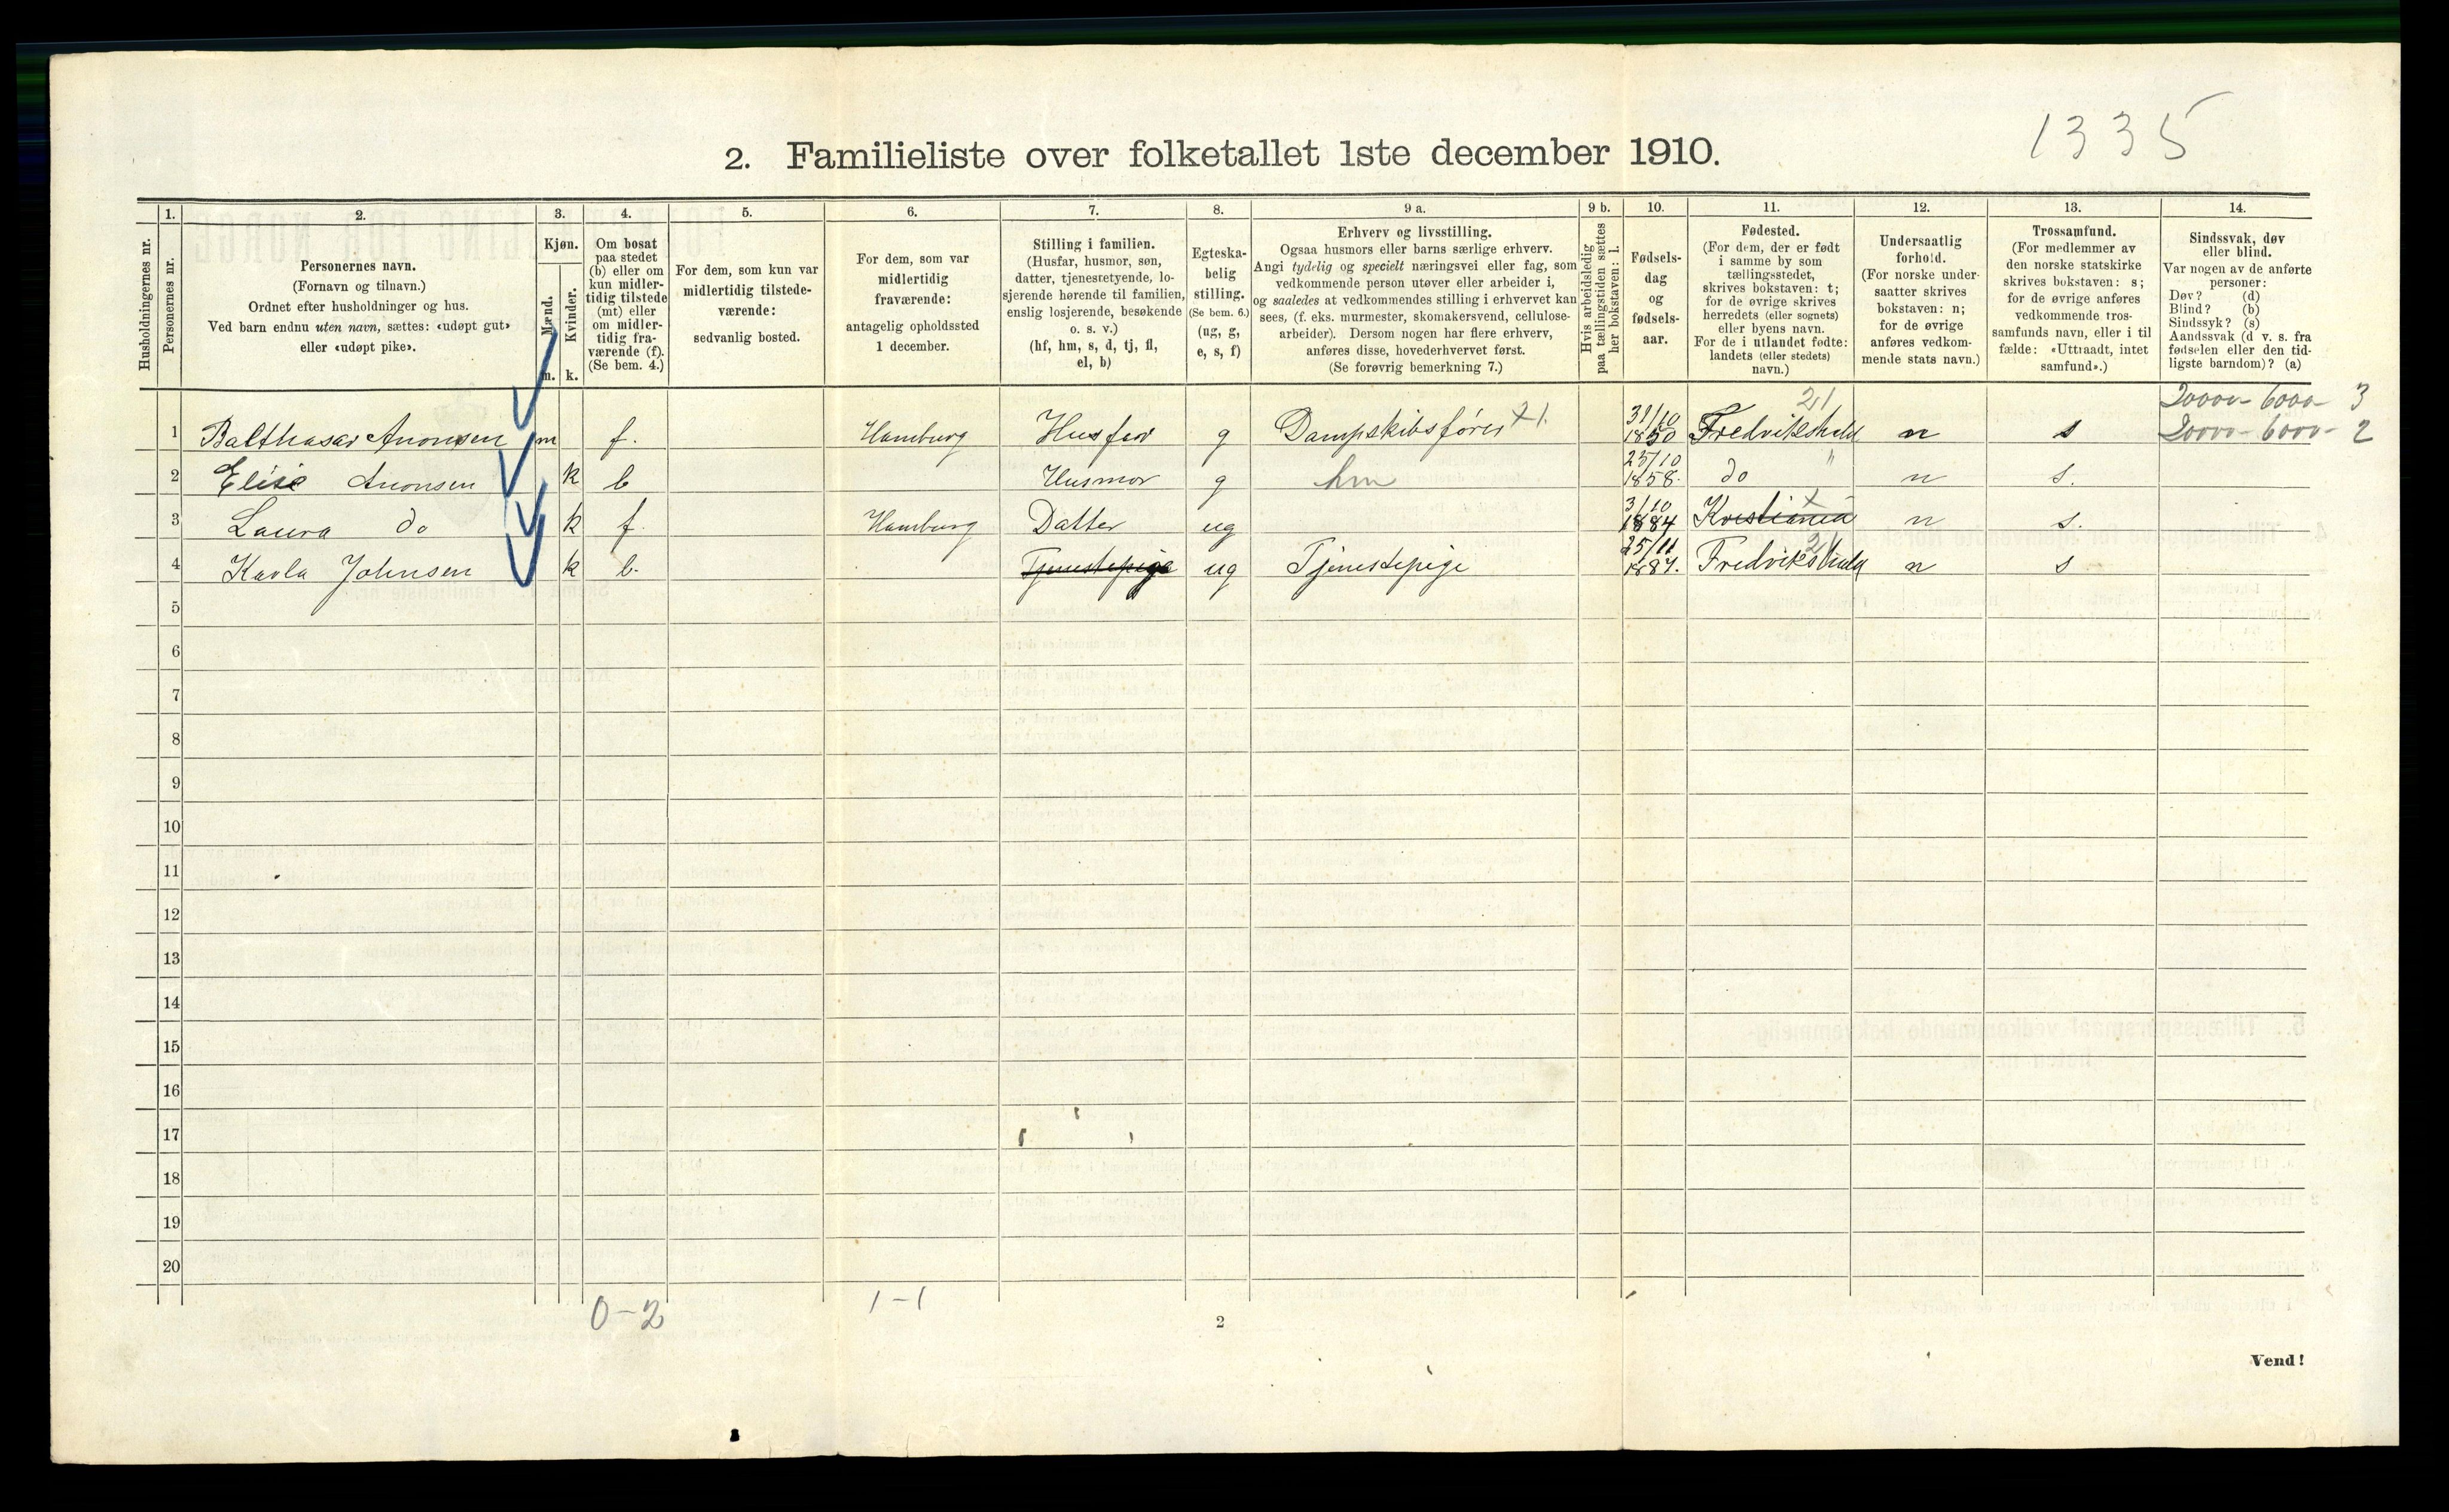 1335
2. Familieliste over folketallet 1ste december 1910.
Husholdningernes nr.
1. Personernes nr.
2. Personernes navn.
(Fornavn og tilnavn.)
Ordnet efter husholdninger og hus.
Ved barn endnu uten navn, sættes: «udøpt gut»
eller «udøpt pike».
3. Kjøn.
Mænd. m.
Kvinder. k.
4. Om bosat
paa stedet
(b) eller om
kun midler-
tidig tilstede
(mt) eller
om midler-
tidig fra-
værende (f).
(Se bem. 4.)
5. For dem, som kun var
midlertidig tilstede-
værende:
sedvanlig bosted.
6. For dem, som var
midlertidig
fraværende:
antagelig opholdssted
1 december.
7. Stilling i familien.
(Husfar, husmor, søn,
datter, tjenestetyende, lo-
sjerende hørende til familien,
enslig losjerende, besøkende
o. s. v.)
(hf, hm, s, d, tj, fl,
el, b)
8. Egteska-
belig
stilling.
(Se bem. 6.)
(ug, g,
e, s, f)
9 a. Erhverv og livsstilling.
Ogsaa husmors eller barns særlige erhverv.
Angi tydelig og specielt næringsvei eller fag, som
vedkommende person utøver eller arbeider i,
og saaledes at vedkommendes stilling i erhvervet kan
sees, (f. eks. murmester, skomakersvend, cellulose-
arbeider). Dersom nogen har flere erhverv,
anføres disse, hovederhvervet først.
(Se forøvrig bemerkning 7.)
9 b. Hvis arbeidsledig
paa tællingstiden sættes
her bokstaven: l.
10. Fødsels-
dag
og
fødsels-
aar.
11. Fødested.
(For dem, der er født
i samme by som
tællingsstedet,
skrives bokstaven: t;
for de øvrige skrives
herredets (eller sognets)
eller byens navn.
For de i utlandet fødte:
landets (eller stedets)
navn.)
12. Undersaatlig
forhold.
(For norske under-
saatter skrives
bokstaven: n;
for de øvrige
anføres vedkom-
mende stats navn.)
13. Trossamfund.
(For medlemmer av
den norske statskirke
skrives bokstaven: s;
for de øvrige anføres
vedkommende tros-
samfunds navn, eller i til
fælde: «Uttraadt, intet
samfund».)
14. Sindssvak, døv
eller blind.
Var nogen av de anførte
personer:
Døv? (d)
Blind? (b)
Sindssyk? (s)
Aandssvak (d v. s. fra
fødselen eller den tid-
ligste barndom)? (a)
21 20000- 6000- 3
1 Balthasar Anonsen m f. Hamburg Husfar g Dampskibsfører 31/10 1850 Fredrikshald n s 20000- 6000- 2
2 Elise Anonsen k b Husmor g hm 25/10 1858. do " n s.
3 Laura do k f. Hamburg Datter ug 3/10 1884 Kristiania n s.
4 Karla Johnsen k b. Tjenestepige ug Tjenestepige 25/11 1887. Fredrikshald 21 n s
5
6
7
8
9
10
11
12
13
14
15
16
17
18
19
20
0-2 1-1
2
Vend!